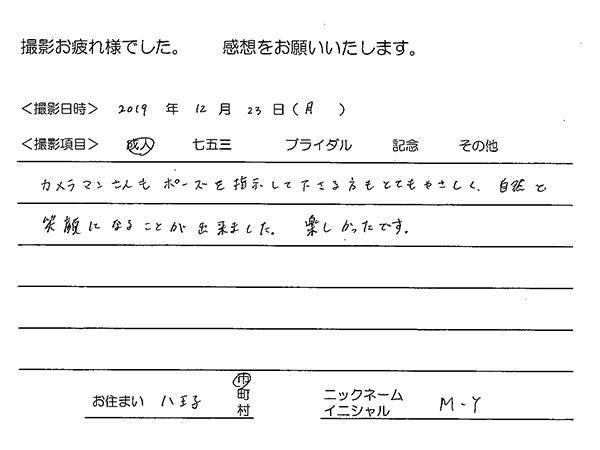 撮影お疲れ様でした。 感想をお願いいたします。
＜撮影日時＞ 2019 年 12 月 23 日(月 )
＜撮影項目＞ 成人 七五三 ブライダル 記念 その他
カメラマンさんも ポーズを指示して下さる方もとてもやさしく、自然と
笑顔になることが出来ました。 楽しかったです。
お住まい 八王子 市町村
ニックネーム
イニシャル M-Y